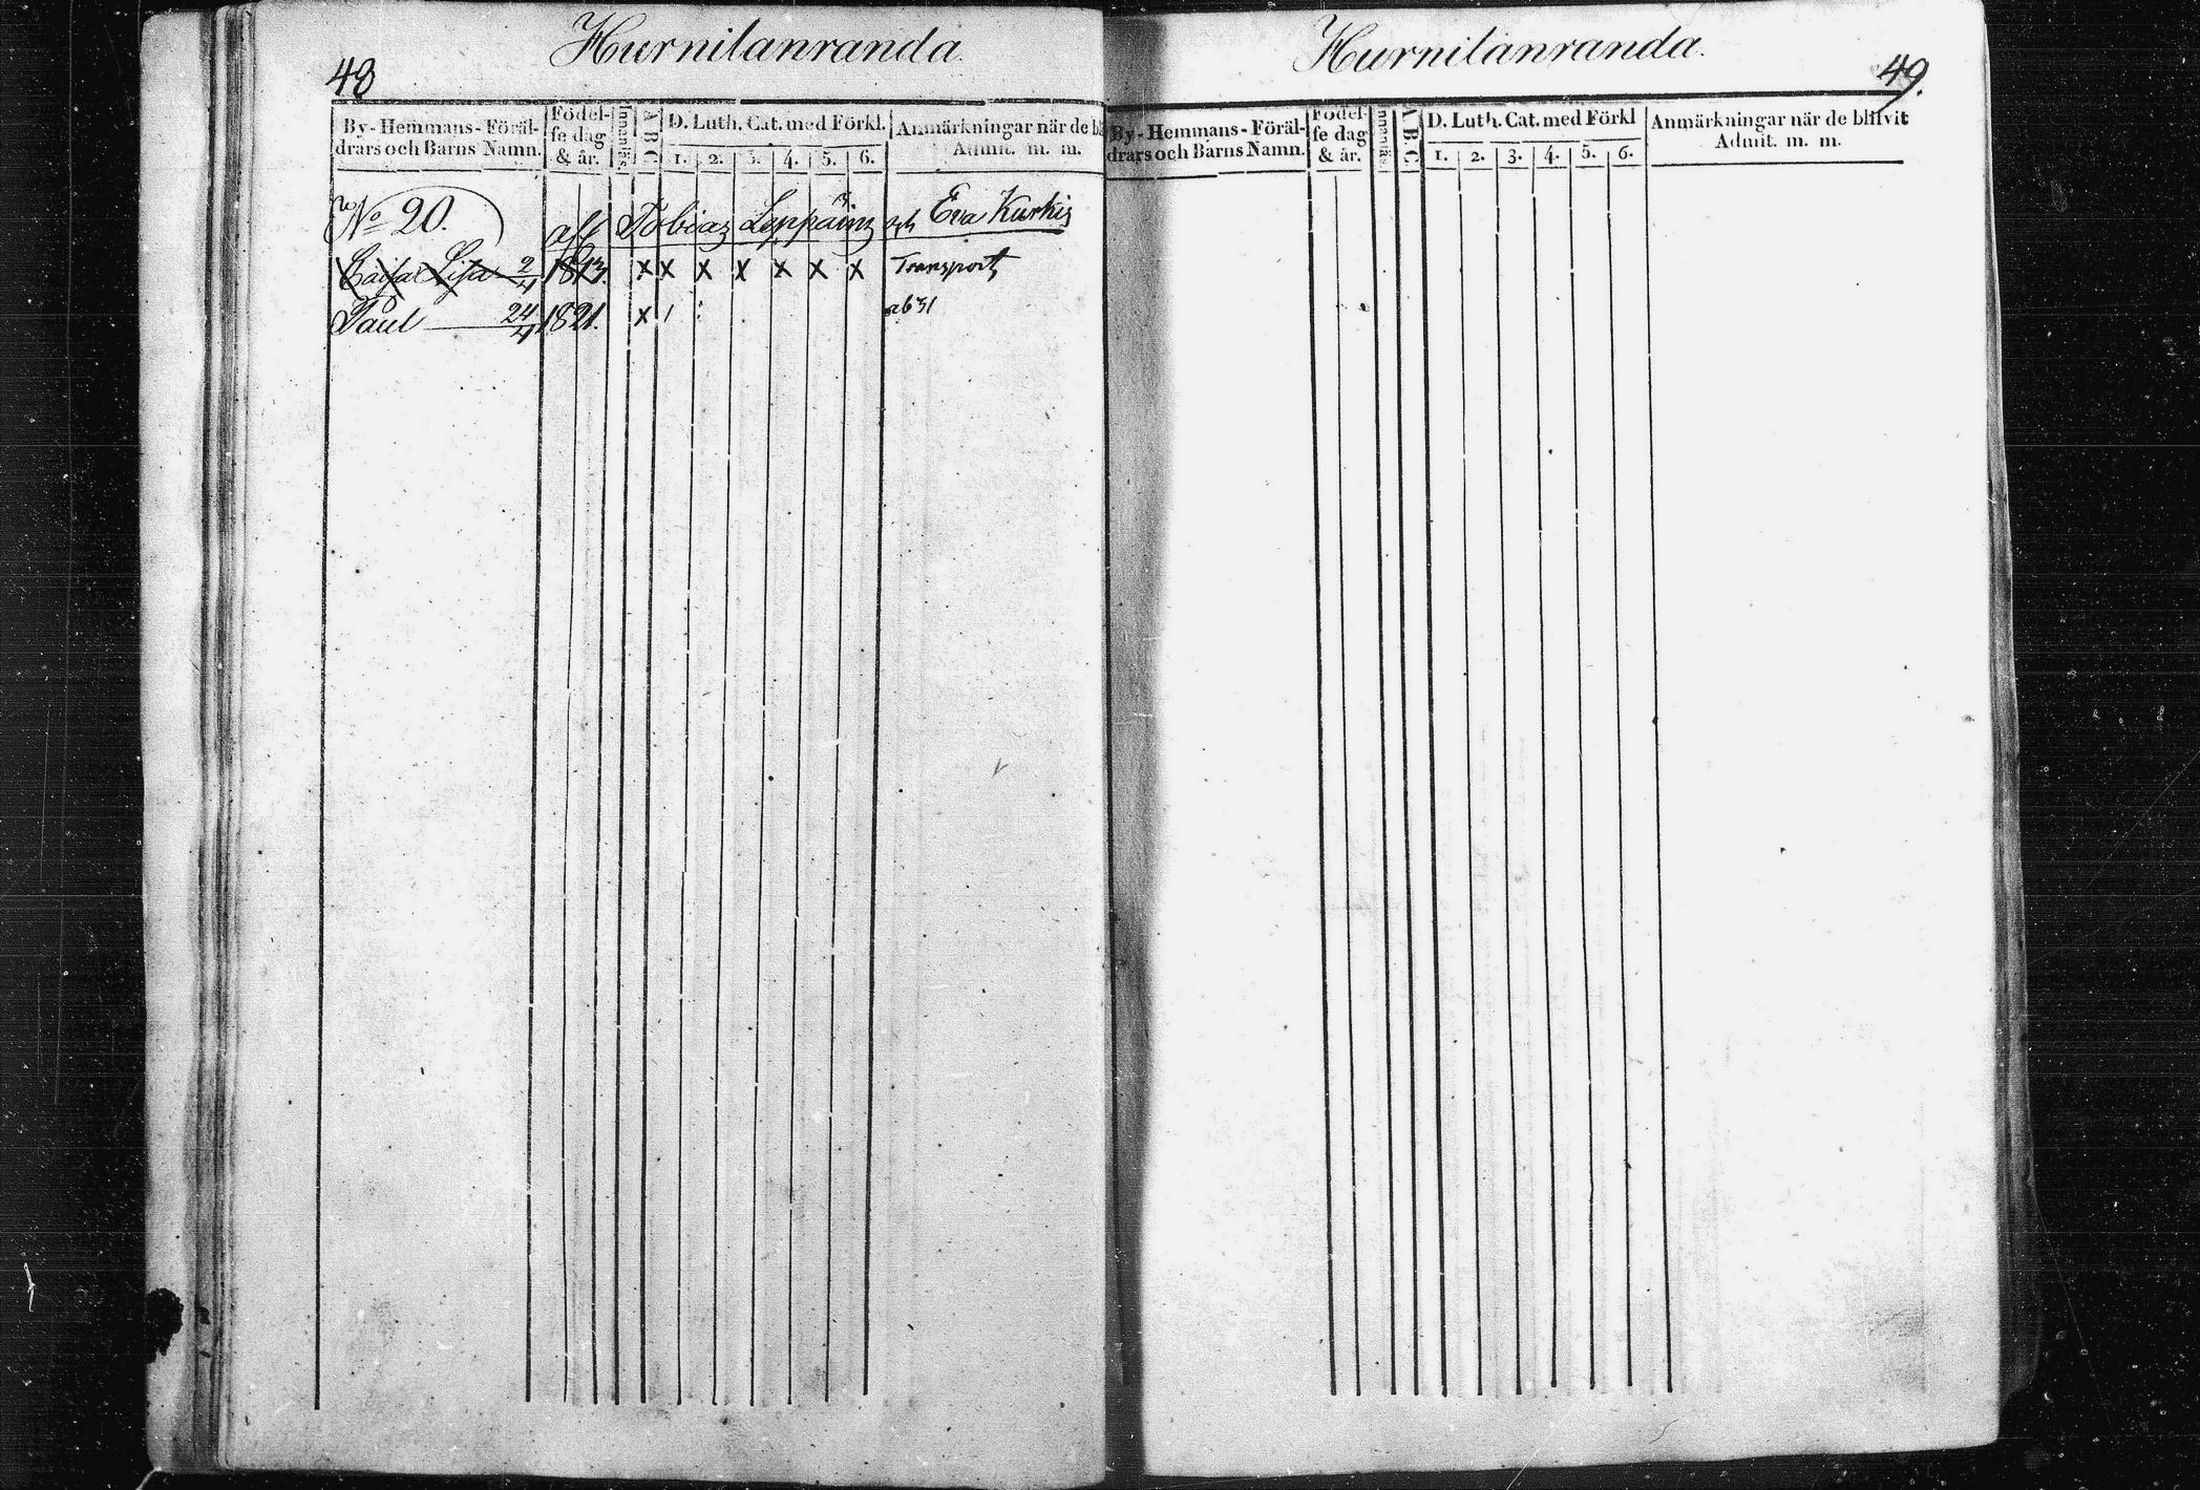 Hurnilanranda
48
By-Hemmans-Föräl-
drars och Barns Namn.
Födel-
se dag
& år.
Innanläs.
A B C
D. Luth. Cat. med Förkl.
1. 2. 3. 4. 5. 6.
Anmärkningar när de bl
Admit. m. m.
No 20.
aff Tobias Leppäinz och Eva Kurkis
Caisa Lisa 2/4 1813. x x x x x x x Transport
Paul 24/4 1821. x ab 31
Hurnilanranda.
49.
By-Hemmans-Föräl-
drars och Barns Namn.
Födel-
se dag
& år.
Innanläs.
A B C
D. Luth. Cat. med Förkl
1. 2. 3. 4. 5. 6.
Anmärkningar när de blifvit
Admit. m. m.